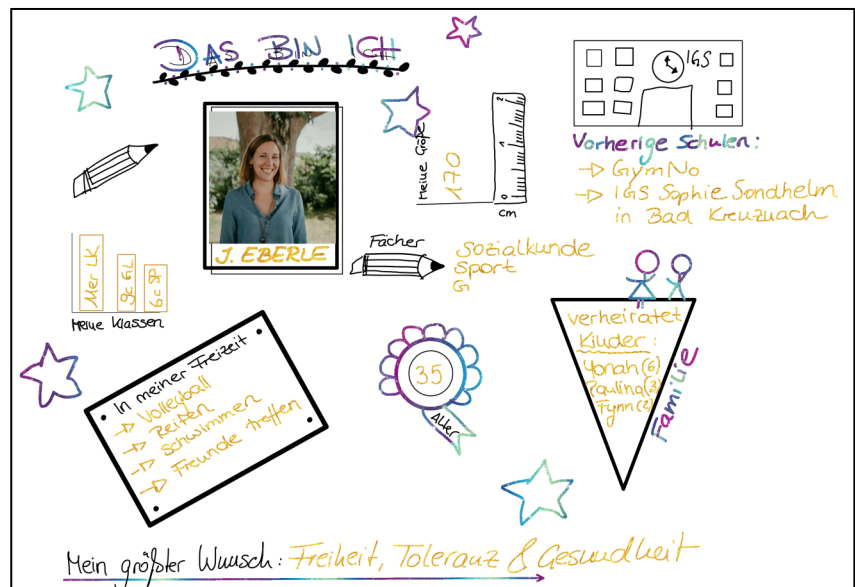 DAS BIN ICH
IGS
Vorherige Schulen:
→ GymNo
→ IGS Sophie Sondhelm
in Bad Kreuznach
Meine Größe
170
0 1 2
cm
J. EBERLE
Fächer
Sozialkunde
Sport
G
11er LK
9c GL
6c SP
Meine Klassen
In meiner Freizeit
→ Volleyball
→ Reiten
→ Schwimmen
→ Freunde treffen
35
Alter
verheiratet
Kinder:
Yonah (6)
Paulina (3)
Fynn (2)
Familie
Mein größter Wunsch: Freiheit, Toleranz & Gesundheit